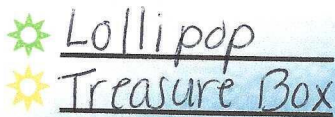 Lollipop
Treasure Box